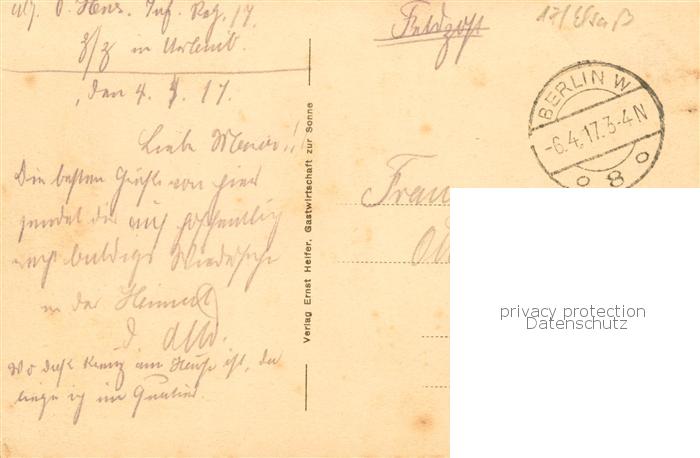 Inf. Reg. 17.
z/z in Urlaub.
, den 4. 4. 17.
Liebe
Die besten Grüße von hier
sendet dir auf hoffentlich
recht baldiges Wiedersehn
in der Heimat
d. Otto.
Wo dieß Kreuz am Hause ist, da
liege ich im Quatier.
Verlag Ernst Heifer, Gastwirtschaft zur Sonne
Feldpost
17/Elsaß
BERLIN W
-6.4.17.3-4N
o 8 o
Frau
privacy protection
Datenschutz